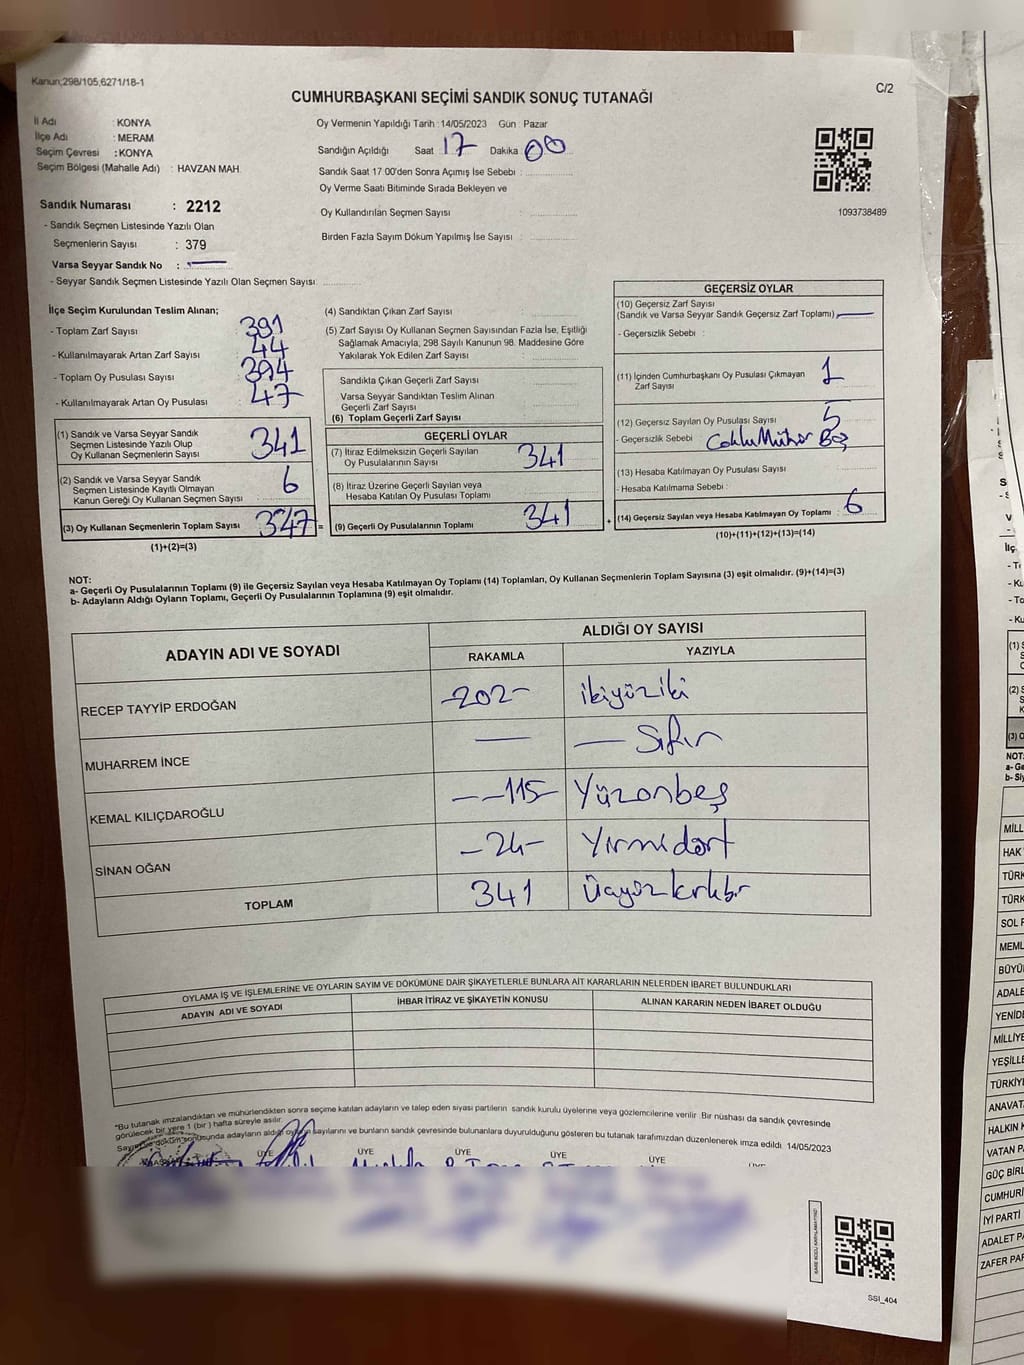 Kanun;298/105,6271/18-1
C/2
CUMHURBAŞKANI SEÇİMİ SANDIK SONUÇ TUTANAĞI
İl Adı : KONYA
İlçe Adı : MERAM
Seçim Çevresi : KONYA
Seçim Bölgesi (Mahalle Adı) : HAVZAN MAH.
Oy Vermenin Yapıldığı Tarih :14/05/2023 Gün : Pazar
Sandığın Açıldığı Saat 17 Dakika 00
Sandık Saat 17 00'den Sonra Açımış İse Sebebi :
Oy Verme Saati Bitiminde Sırada Bekleyen ve
Oy Kullandırılan Seçmen Sayısı :
Birden Fazla Sayım Döküm Yapılmış İse Sayısı :
1093738489
Sandık Numarası : 2212
- Sandık Seçmen Listesinde Yazılı Olan
Seçmenlerin Sayısı : 379
Varsa Seyyar Sandık No : —
- Seyyar Sandık Seçmen Listesinde Yazılı Olan Seçmen Sayısı:
İlçe Seçim Kurulundan Teslim Alınan;
- Toplam Zarf Sayısı 391
- Kullanılmayarak Artan Zarf Sayısı 44
- Toplam Oy Pusulası Sayısı 394
- Kullanılmayarak Artan Oy Pusulası 47
(1) Sandık ve Varsa Seyyar Sandık
Seçmen Listesinde Yazılı Olup
Oy Kullanan Seçmenlerin Sayısı 341
(2) Sandık ve Varsa Seyyar Sandık
Seçmen Listesinde Kayıtlı Olmayan
Kanun Gereği Oy Kullanan Seçmen Sayısı 6
(3) Oy Kullanan Seçmenlerin Toplam Sayısı 347 =
(1)+(2)=(3)
(4) Sandıktan Çıkan Zarf Sayısı :
(5) Zarf Sayısı Oy Kullanan Seçmen Sayısından Fazla İse, Eşitliği
Sağlamak Amacıyla, 298 Sayılı Kanunun 98. Maddesine Göre
Yakılarak Yok Edilen Zarf Sayısı :
Sandıkta Çıkan Geçerli Zarf Sayısı
Varsa Seyyar Sandıktan Teslim Alınan
Geçerli Zarf Sayısı
(6) Toplam Geçerli Zarf Sayısı
GEÇERLİ OYLAR
(7) İtiraz Edilmeksizin Geçerli Sayılan
Oy Pusulalarının Sayısı 341
(8) İtiraz Üzerine Geçerli Sayılan veya
Hesaba Katılan Oy Pusulası Toplamı
(9) Geçerli Oy Pusulalarının Toplamı 341 +
GEÇERSİZ OYLAR
(10) Geçersiz Zarf Sayısı
(Sandık ve Varsa Seyyar Sandık Geçersiz Zarf Toplamı) —
- Geçersizlik Sebebi :
(11) İçinden Cumhurbaşkanı Oy Pusulası Çıkmayan
Zarf Sayısı 1
(12) Geçersiz Sayılan Oy Pusulası Sayısı 5
- Geçersizlik Sebebi
(13) Hesaba Katılmayan Oy Pusulası Sayısı
- Hesaba Katılmama Sebebi :
(14) Geçersiz Sayılan veya Hesaba Katılmayan Oy Toplamı : 6
(10)+(11)+(12)+(13)=(14)
NOT:
a- Geçerli Oy Pusulalarının Toplamı (9) ile Geçersiz Sayılan veya Hesaba Katılmayan Oy Toplamı (14) Toplamları, Oy Kullanan Seçmenlerin Toplam Sayısına (3) eşit olmalıdır. (9)+(14)=(3)
b- Adayların Aldığı Oyların Toplamı, Geçerli Oy Pusulalarının Toplamına (9) eşit olmalıdır.
ADAYIN ADI VE SOYADI
ALDIĞI OY SAYISI
RAKAMLA YAZIYLA
RECEP TAYYİP ERDOĞAN -202- ikiyüziki
MUHARREM İNCE — — Sıfır
KEMAL KILIÇDAROĞLU --115- Yüzonbeş
SİNAN OĞAN -24- Yirmidört
TOPLAM 341 Üçyüzkırkbir
OYLAMA İŞ VE İŞLEMLERİNE VE OYLARIN SAYIM VE DÖKÜMÜNE DAİR ŞİKAYETLERLE BUNLARA AİT KARARLARIN NELERDEN İBARET BULUNDUKLARI
ADAYIN ADI VE SOYADI İHBAR İTİRAZ VE ŞİKAYETİN KONUSU ALINAN KARARIN NEDEN İBARET OLDUĞU
*Bu tutanak imzalandıktan ve mühürlendikten sonra seçime katılan adayların ve talep eden siyasi partilerin sandık kurulu üyelerine veya gözlemcilerine verilir. Bir nüshası da sandık çevresinde
görülecek bir yere 1 (bir ) hafta süreyle asılır.
Sayım ve döküm sonucunda adayların aldığı oyların sayılarını ve bunların sandık çevresinde bulunanlara duyurulduğunu gösteren bu tutanak tarafımızdan düzenlenerek imza edildi. 14/05/2023
ÜYE ÜYE ÜYE ÜYE ÜYE
SSİ_404
MİLL
HAK
TÜRK
TÜRK
SOL P
MEML
BÜYÜ
ADALE
YENİDE
MİLLİYE
YEŞİLLE
TÜRKİY
ANAVAT
HALKIN K
VATAN P
GÜÇ BİRL
CUMHURİ
İYİ PARTİ
ADALET PA
ZAFER PAR